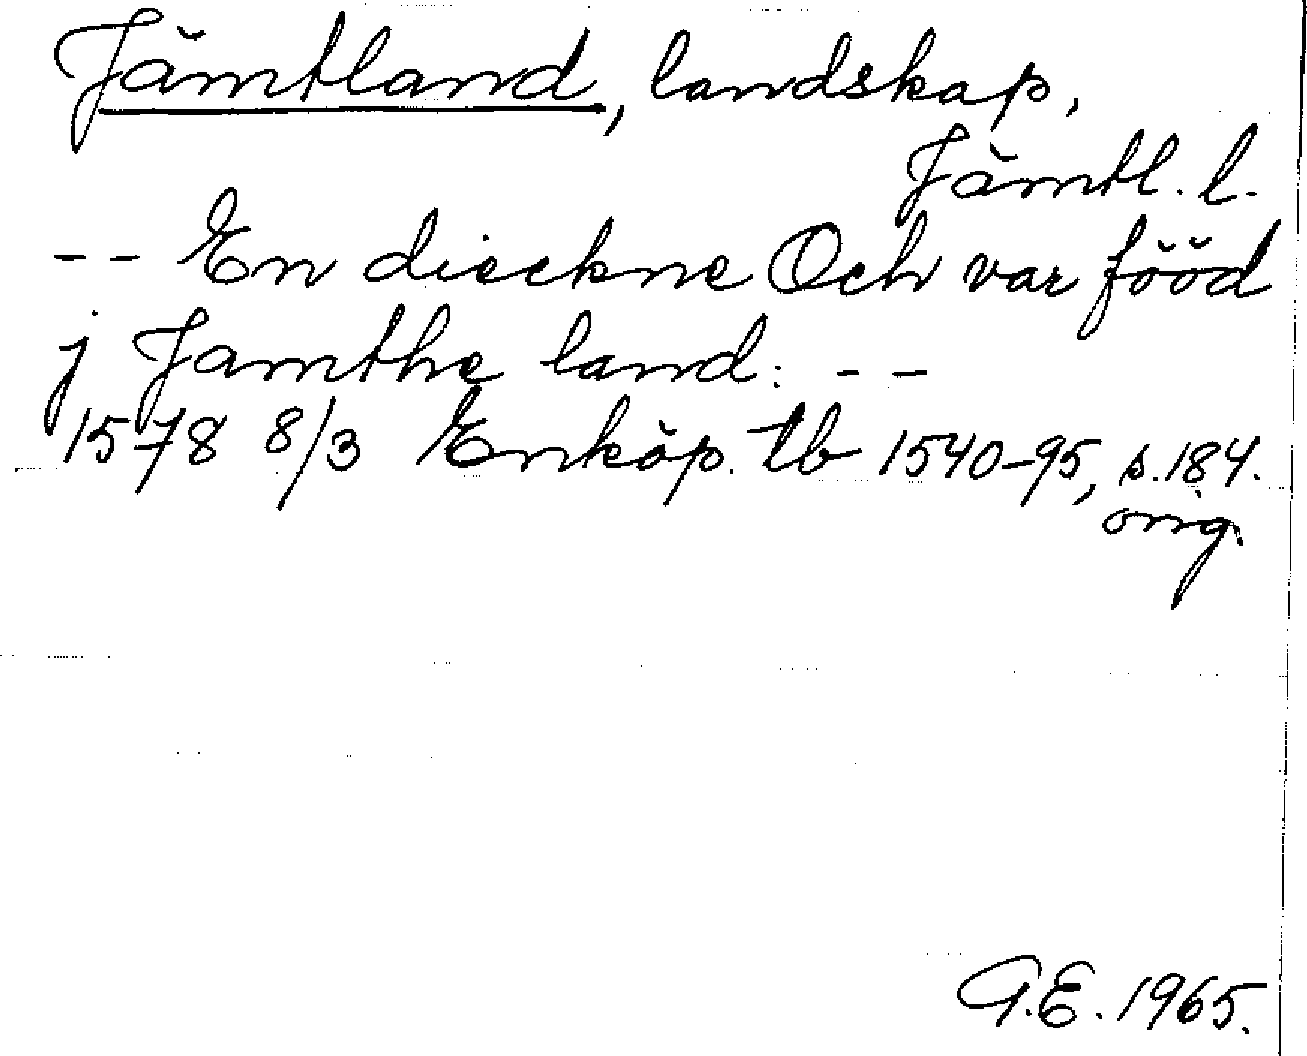 Jämtland, landskap,
Jämtl. l.
-- En dieckne Och var fööd
j Jamthe land: --
1578 8/3 Enköp. tb 1540-95, s. 184.
orig.
G.E. 1965.